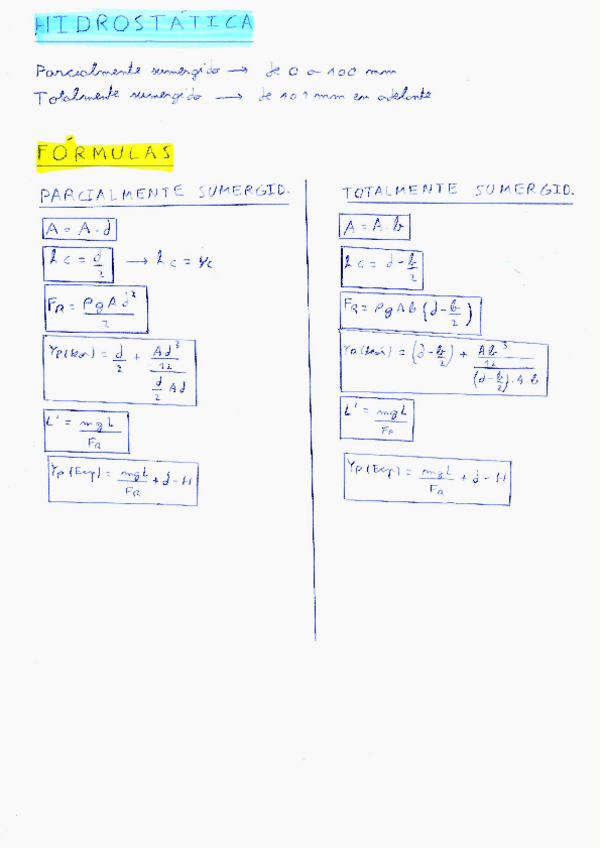 HIDROSTÁTICA
Parcialmente sumergido → de 0 a 100 mm
Totalmente sumergido → de 101 mm en adelante
FÓRMULAS
PARCIALMENTE SUMERGID.
A = A · d
hc = d/2 → hc = Yc
FR = ρgAd²/2
Yp(teor) = d/2 + (Ad³/12)/(d/2 Ad)
L' = mgL/FR
Yp(Exp) = mgL/FR + d - H
TOTALMENTE SUMERGID.
A = A · b
hc = d - b/2
FR = ρgAb(d - b/2)
Yp(teór) = (d - b/2) + (Ab³/12)/((d - b/2) · A b)
L' = mgL/FR
Yp(Exp) = mgL/FR + d - H